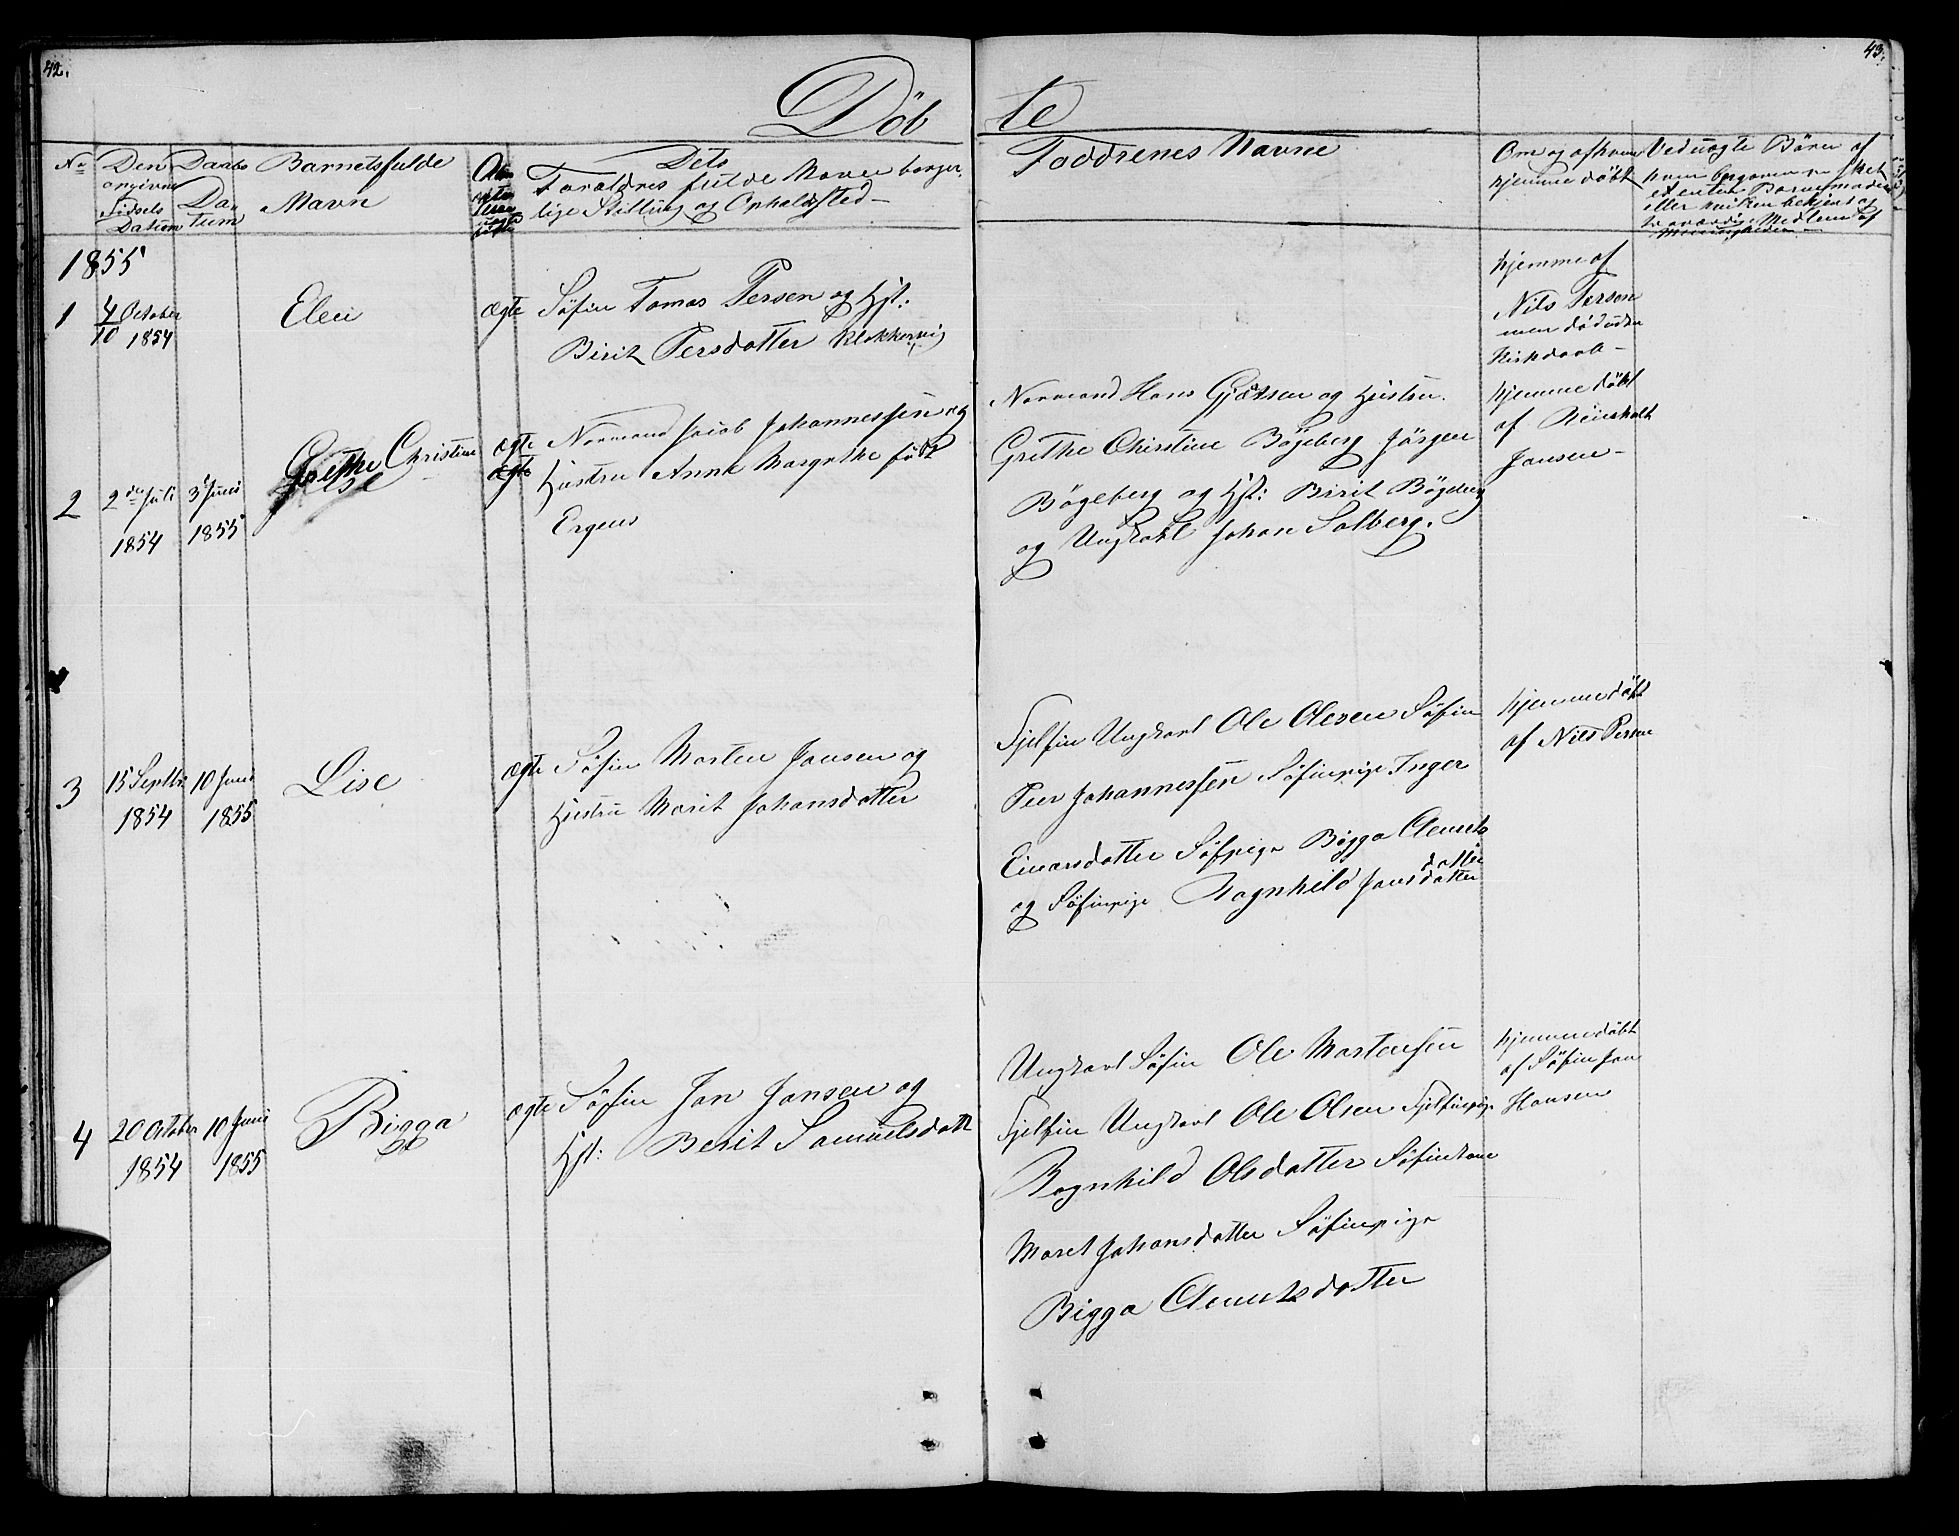 42.
43.
Döbte
No
Den angivne Födsels Datum
Daabs Datum
Barnets fulde Navn
Forældres fulde Navne borgerlige Stilling og Opholdsted
Faddrenes Navne
Om og af hvem hjemmedöbt
Ved uægte Börn af
1855
1
4/10 October 1854
Elen
ægte
Söfin Tomas Persen og Hst:
Birit Persdatter Klokkervig
hjemme af
Nils Persen
men död uden
Kirkdaab
2
2den Juli 1854
3d Juni 1855
Grethe Christine
ægte
Normand Jacob Johannessen og
Hustru Anne Margrethe född
Ergens
Normand Hans Gjætsen og Hustru
Grethe Christine Bögeberg Jörgen
Bögeberg og Hst: Birit Bögeberg
og Ungkarl Johan Solberg.
hjemmedöbt
af Reinholt
Jansen
3
15 Septbr 1854
10 Juni 1855
Lise
ægte
Söfin Morten Jansen og
Hustru Marit Johansdatter
Fjelfin Ungkarl Ole Olesen Söfin
Peer Johannessen Söfinpige Inger
Einarsdatter Söfpige Bigga Clemets
datter
og Söfinpige Ragnhild Jansdatter
hjemmedöbt
af Nils Persen
4
20 October 1854
10 Juni 1855
Bigga
ægte
Söfin Jan Jansen og
Hst: Berit Samuelsdatt
Ungkarl Söfin Ole Mortensen
Fjelfin Ungkarl Ole Olsen Fjelfinpige
Ragnhild Olsdatter Söfinkone
Maret Johansdatter Söfinpige
Bigga Clemetsdatter
hjemmedöbt
af Söfin Jan
Hansen